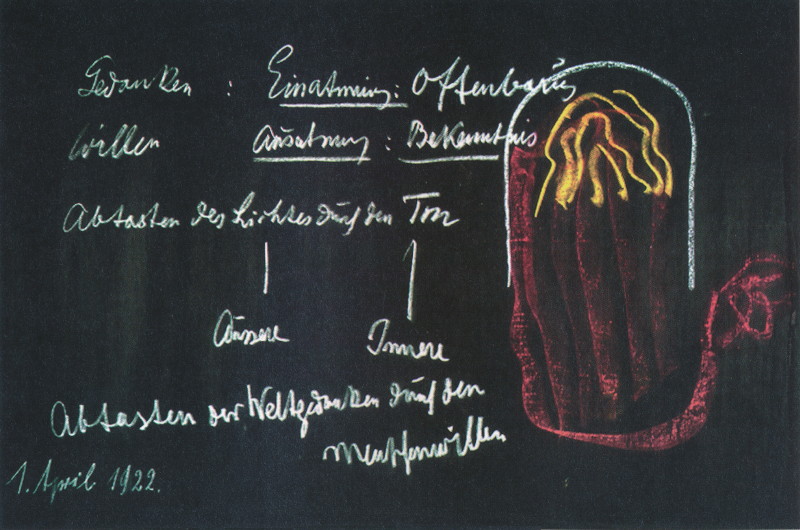 Gedanken : Einatmung: Offenbarung
Willen Ausatmung : Bekenntnis
Abtasten des Lichtes durch den Ton
Äussere Innere
Abtasten der Weltgedanken durch den
Menschenwillen
1. April 1922.